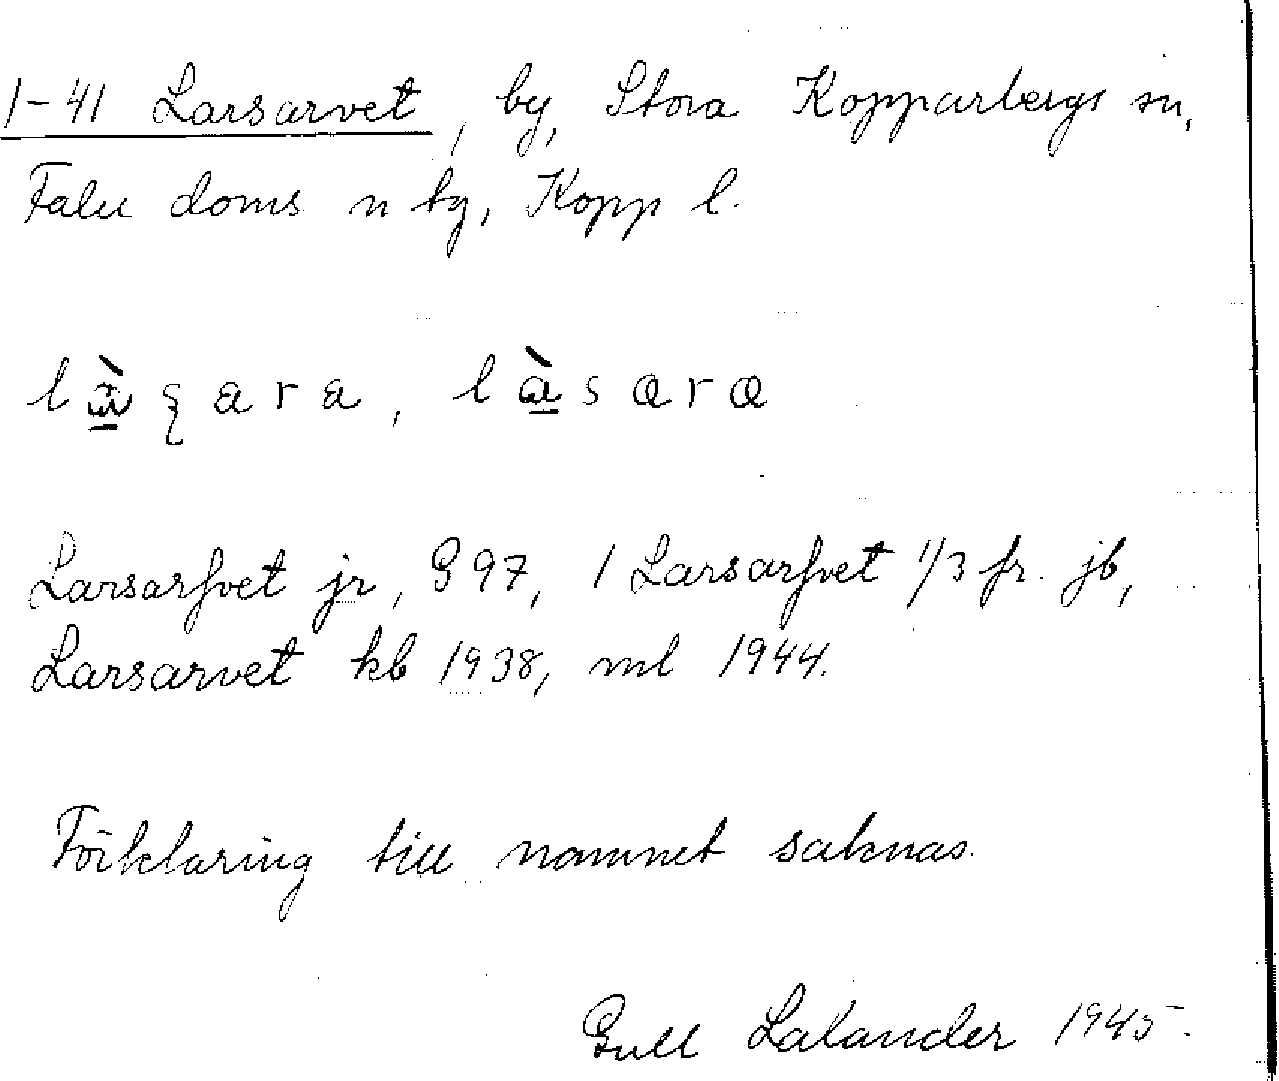 1-41 Larsarvet, by, Stora Kopparbergs sn,
Falu doms n by, Kopp l.
làʂara, làsara
Larsarfvet jr, G 97, 1 Larsarfvet 1/3 fr. jb,
Larsarvet kb 1938, ml 1944.
Förklaring till namnet saknas.
Gull Lalander 1945.